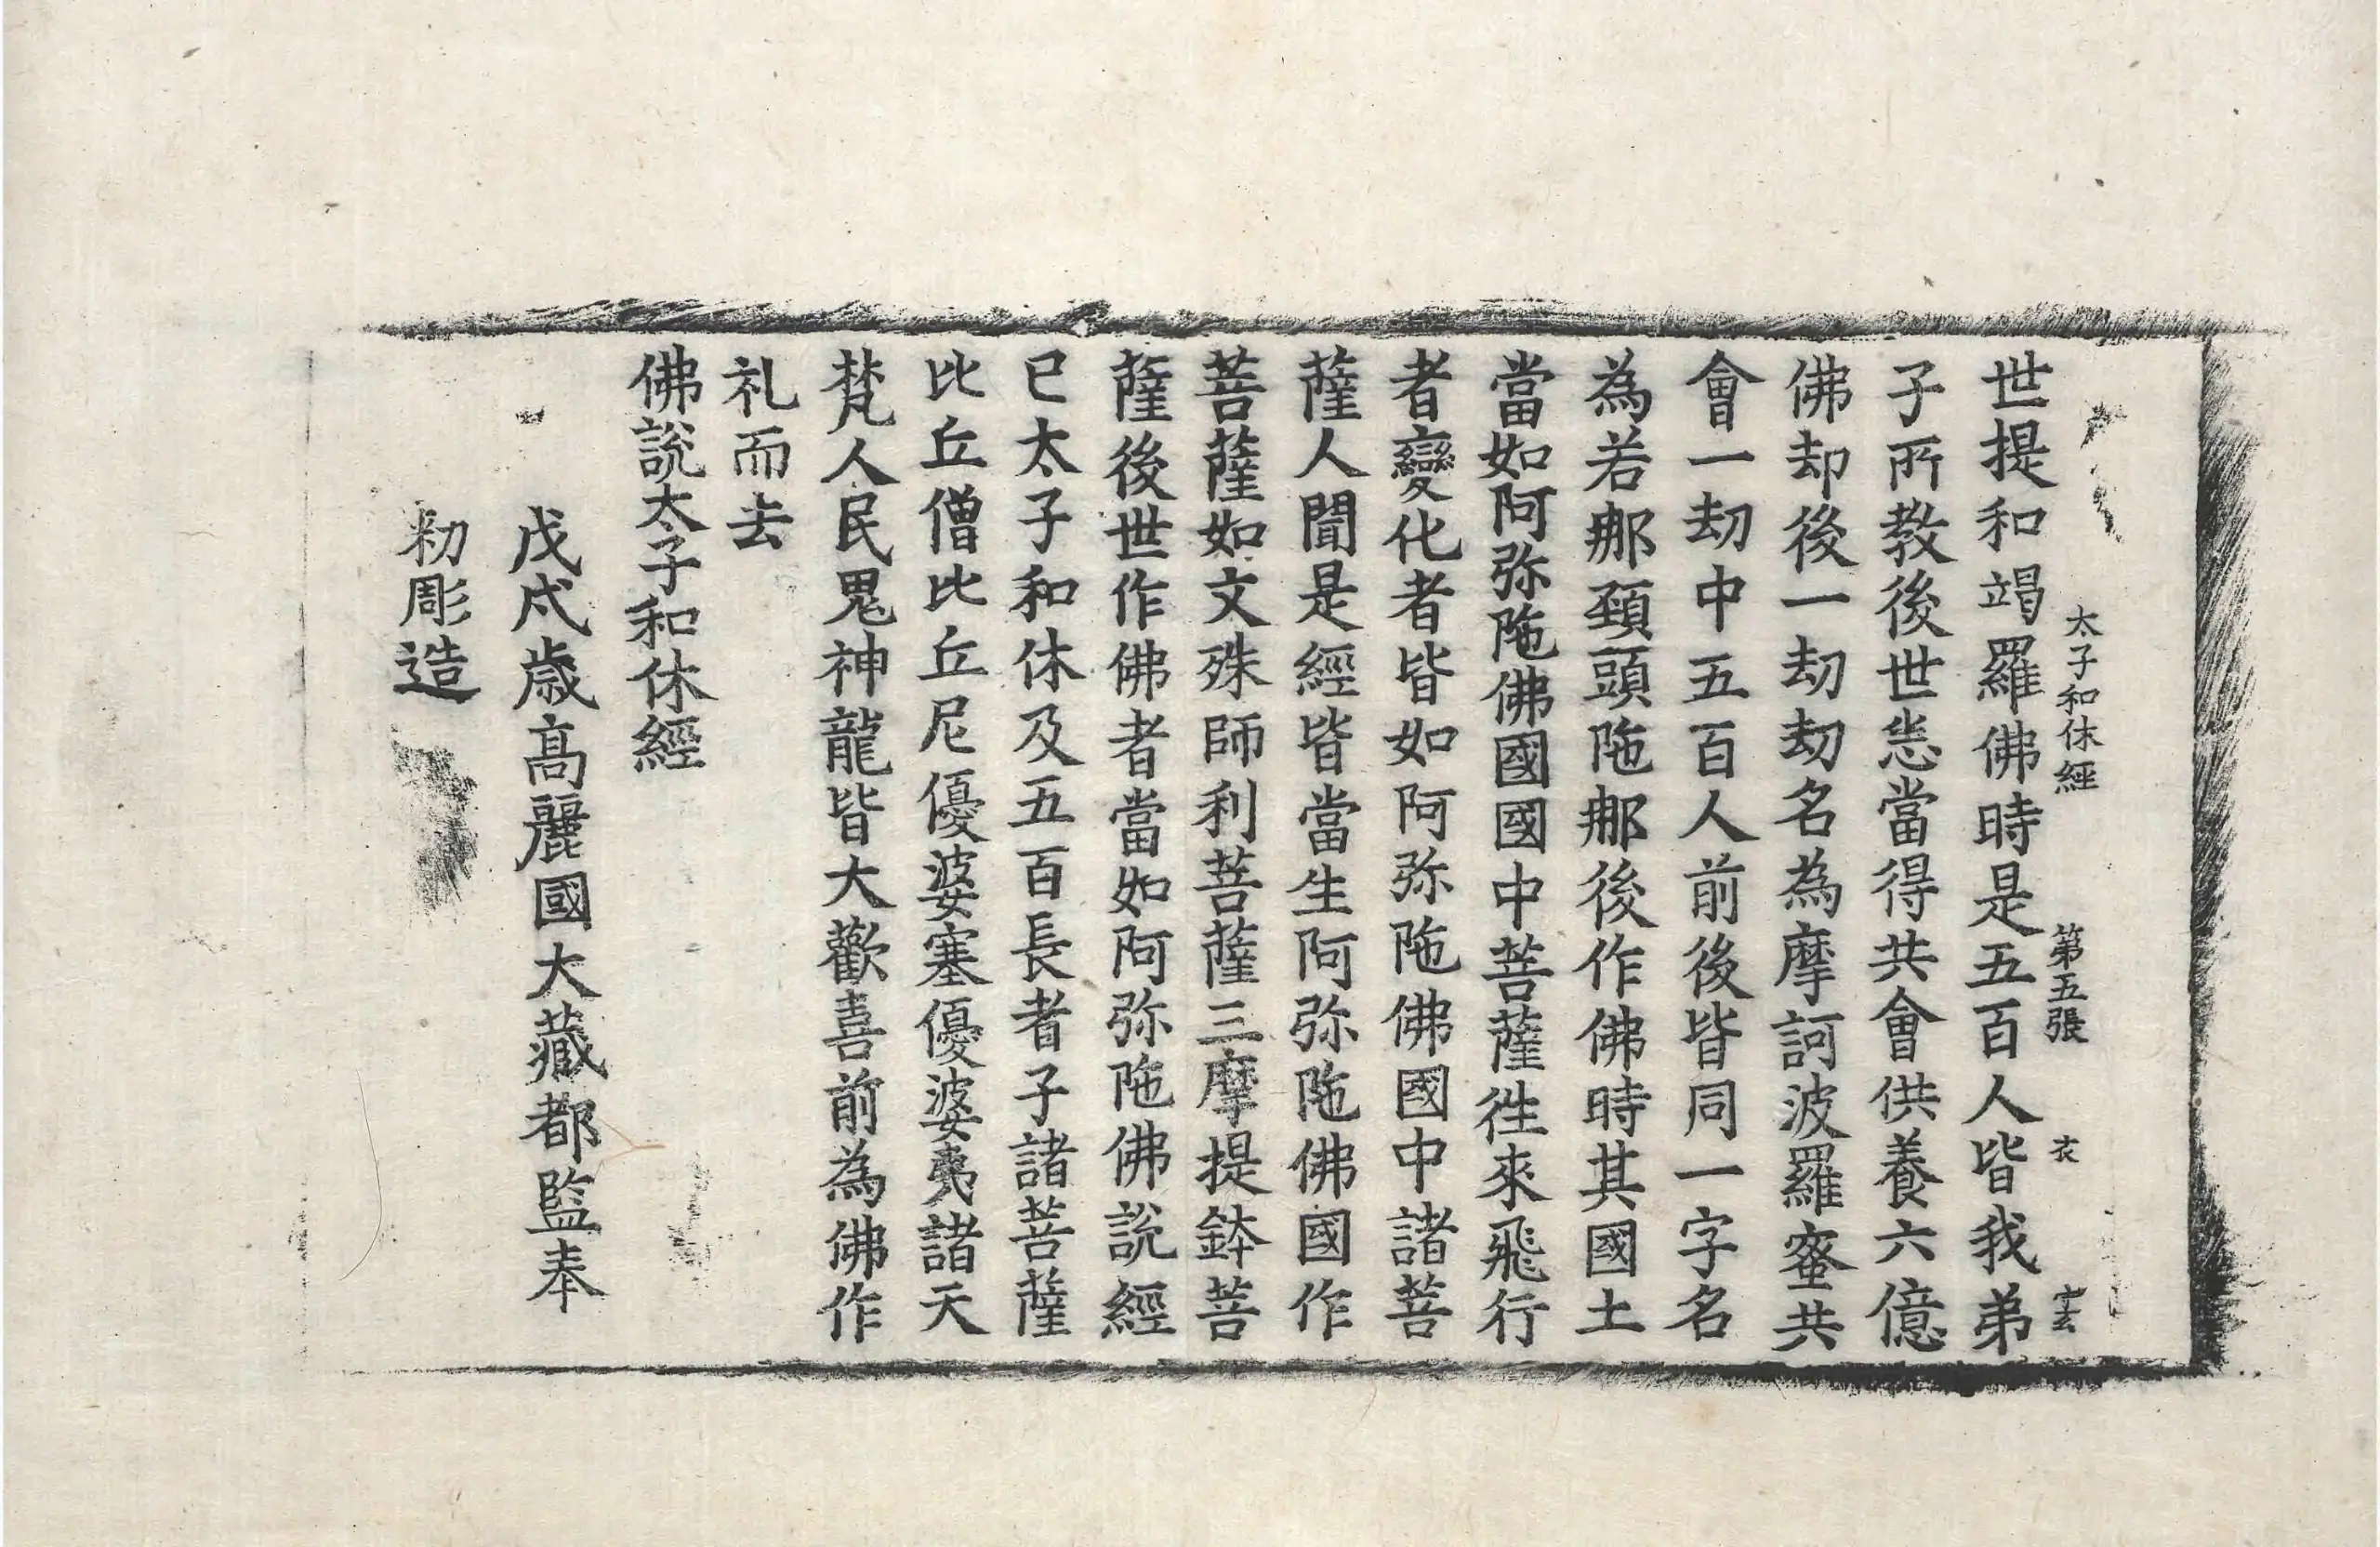 太子和休經 第五張 衣
世提和竭羅佛時是五百人皆我弟
子所教後世悉當得共會供養六億
佛却後一劫劫名為摩訶波羅蜜共
會一劫中五百人前後皆同一字名
為若那頚頭陁那後作佛時其國土
當如阿弥陁佛國國中菩薩徃來飛行
者變化者皆如阿弥陁佛國中諸菩
薩人聞是經皆當生阿弥陁佛國作
菩薩如文殊師利菩薩三摩提鉢菩
薩後世作佛者當如阿弥陁佛說經
已太子和休及五百長者子諸菩薩
比丘僧比丘尼優婆塞優婆夷諸天
梵人民鬼神龍皆大歡喜前為佛作
礼而去
佛說太子和休經
戊戌歲高麗國大藏都監奉
勑彫造